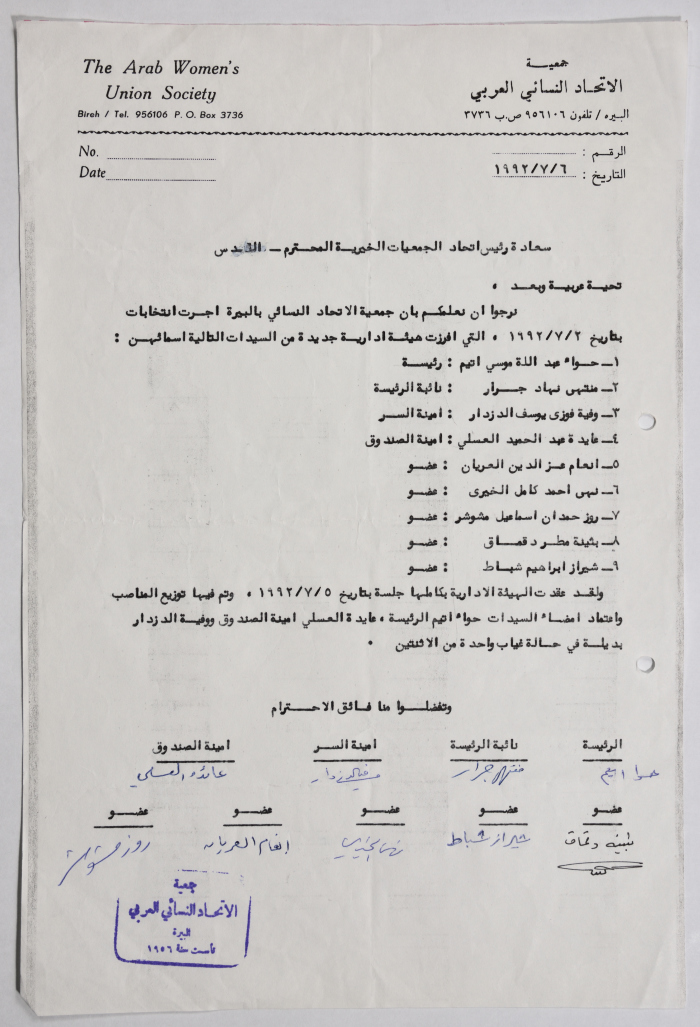 The Arab Women's
Union Society
Bireh / Tel. 956106 P. O. Box 3736
جمعية
الاتحاد النسائي العربي
البيره / تلفون ٩٥٦١٠٦ ص.ب ٣٧٣٦
No.
Date
الرقم :
التاريخ : ١٩٩٢/٧/٦
سعادة رئيس اتحاد الجمعيات الخيرية المحترم – القدس
تحية عربية وبعد ،
نرجوا ان نعلمكم بان جمعية الاتحاد النسائي بالبيرة اجرت انتخابات
بتاريخ ١٩٩٢/٧/٢ ، التي افرزت هيئة ادارية جديدة من السيدات التالية اسمائهن :
١– حواء عبد اللة موسي اتيم : رئيسة
٢– منتهى نهاد جرار : نائبة الرئيسة
٣– وفية فوزى يوسف الدزدار : امينة السر
٤– عايدة عبد الحميد العسلي : امينة الصندوق
٥– انعام عز الدين العريان : عضو
٦– نهى احمد كامل الخيرى : عضو
٧– روز حمدان اسماعيل مشوشر : عضو
٨– بثينة مطر دقماق : عضو
٩– شيراز ابراهيم شباط : عضو
ولقد عقدت الهيئة الادارية بكاملها جلسة بتاريخ ١٩٩٢/٧/٥ ، وتم فيها توزيع المناصب
واعتماد امضاء السيدات حواء اتيم الرئيسة ، عايدة العسلي امينة الصندوق ووفية الدزدار
بديلة في حالة غياب واحدة من الاثنتين .
وتفضلوا منا فائق الاحترام
الرئيسة نائبة الرئيسة امينة السر امينة الصندوق
حوا اتيم منتهى جرار عائده العسلي
عضو عضو عضو عضو عضو
بثينه دقماق شيراز شباط نهى الخيري إنعام العريان روز
جمعية
الاتحاد النسائي العربي
البيرة
تأسست سنة ١٩٥٦